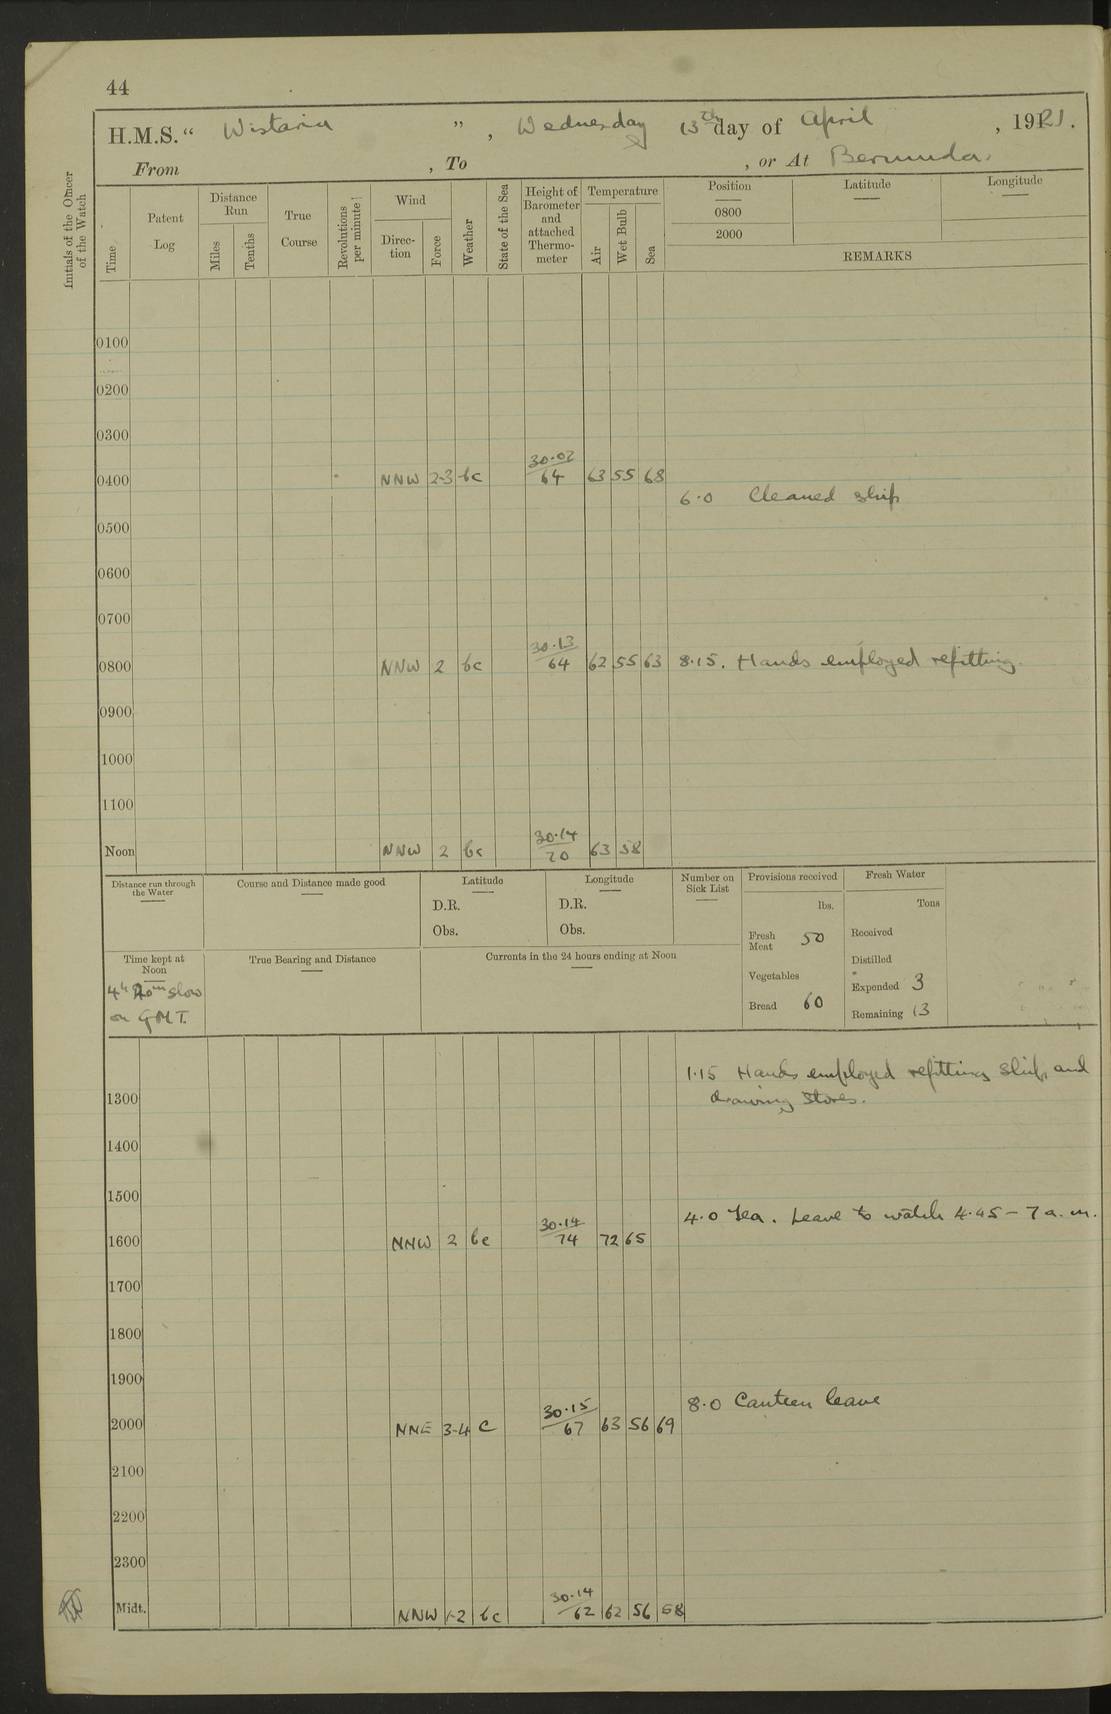 44
H.M.S. “ Wistaria ” , Wednesday 13th day of April , 1921.
From , To , or At Bermuda.
Initials of the Officer of the Watch
Time
Patent Log
Distance Run
Miles
Tenths
True Course
Revolutions per minute
Wind
Direc-tion
Force
Weather
State of the Sea
Height of Barometer and attached Thermo-meter
Temperature
Air
Wet Bulb
Sea
Position Latitude Longitude
0800
2000
REMARKS
0100
0200
0300
0400 NNW 2-3 bc 30.02/64 63 55 68
6.0 Cleaned ship
0500
0600
0700
0800 NNW 2 bc 30.13/64 62 55 63 8.15. Hands employed refitting.
0900
1000
1100
Noon NNW 2 bc 30.14/70 63 58
Distance run through the Water
Course and Distance made good
Latitude
D.R.
Obs.
Longitude
D.R.
Obs.
Number on Sick List
Provisions received
lbs.
Fresh Meat 50
Vegetables
Bread 60
Fresh Water
Tons
Received
Distilled
Expended 3
Remaining 13
Time kept at Noon
4h 20m slow
on GMT.
True Bearing and Distance
Currents in the 24 hours ending at Noon
1.15 Hands employed refitting ship and
drawing stores.
1300
1400
1500
4.0 Tea. Leave to watch 4.45 - 7 a.m.
1600 NNW 2 bc 30.14/74 72 65
1700
1800
1900
8.0 Canteen leave
2000 NNE 3-4 C 30.15/67 63 56 69
2100
2200
2300
Midt. NNW 1-2 bc 30.14/62 62 56 68